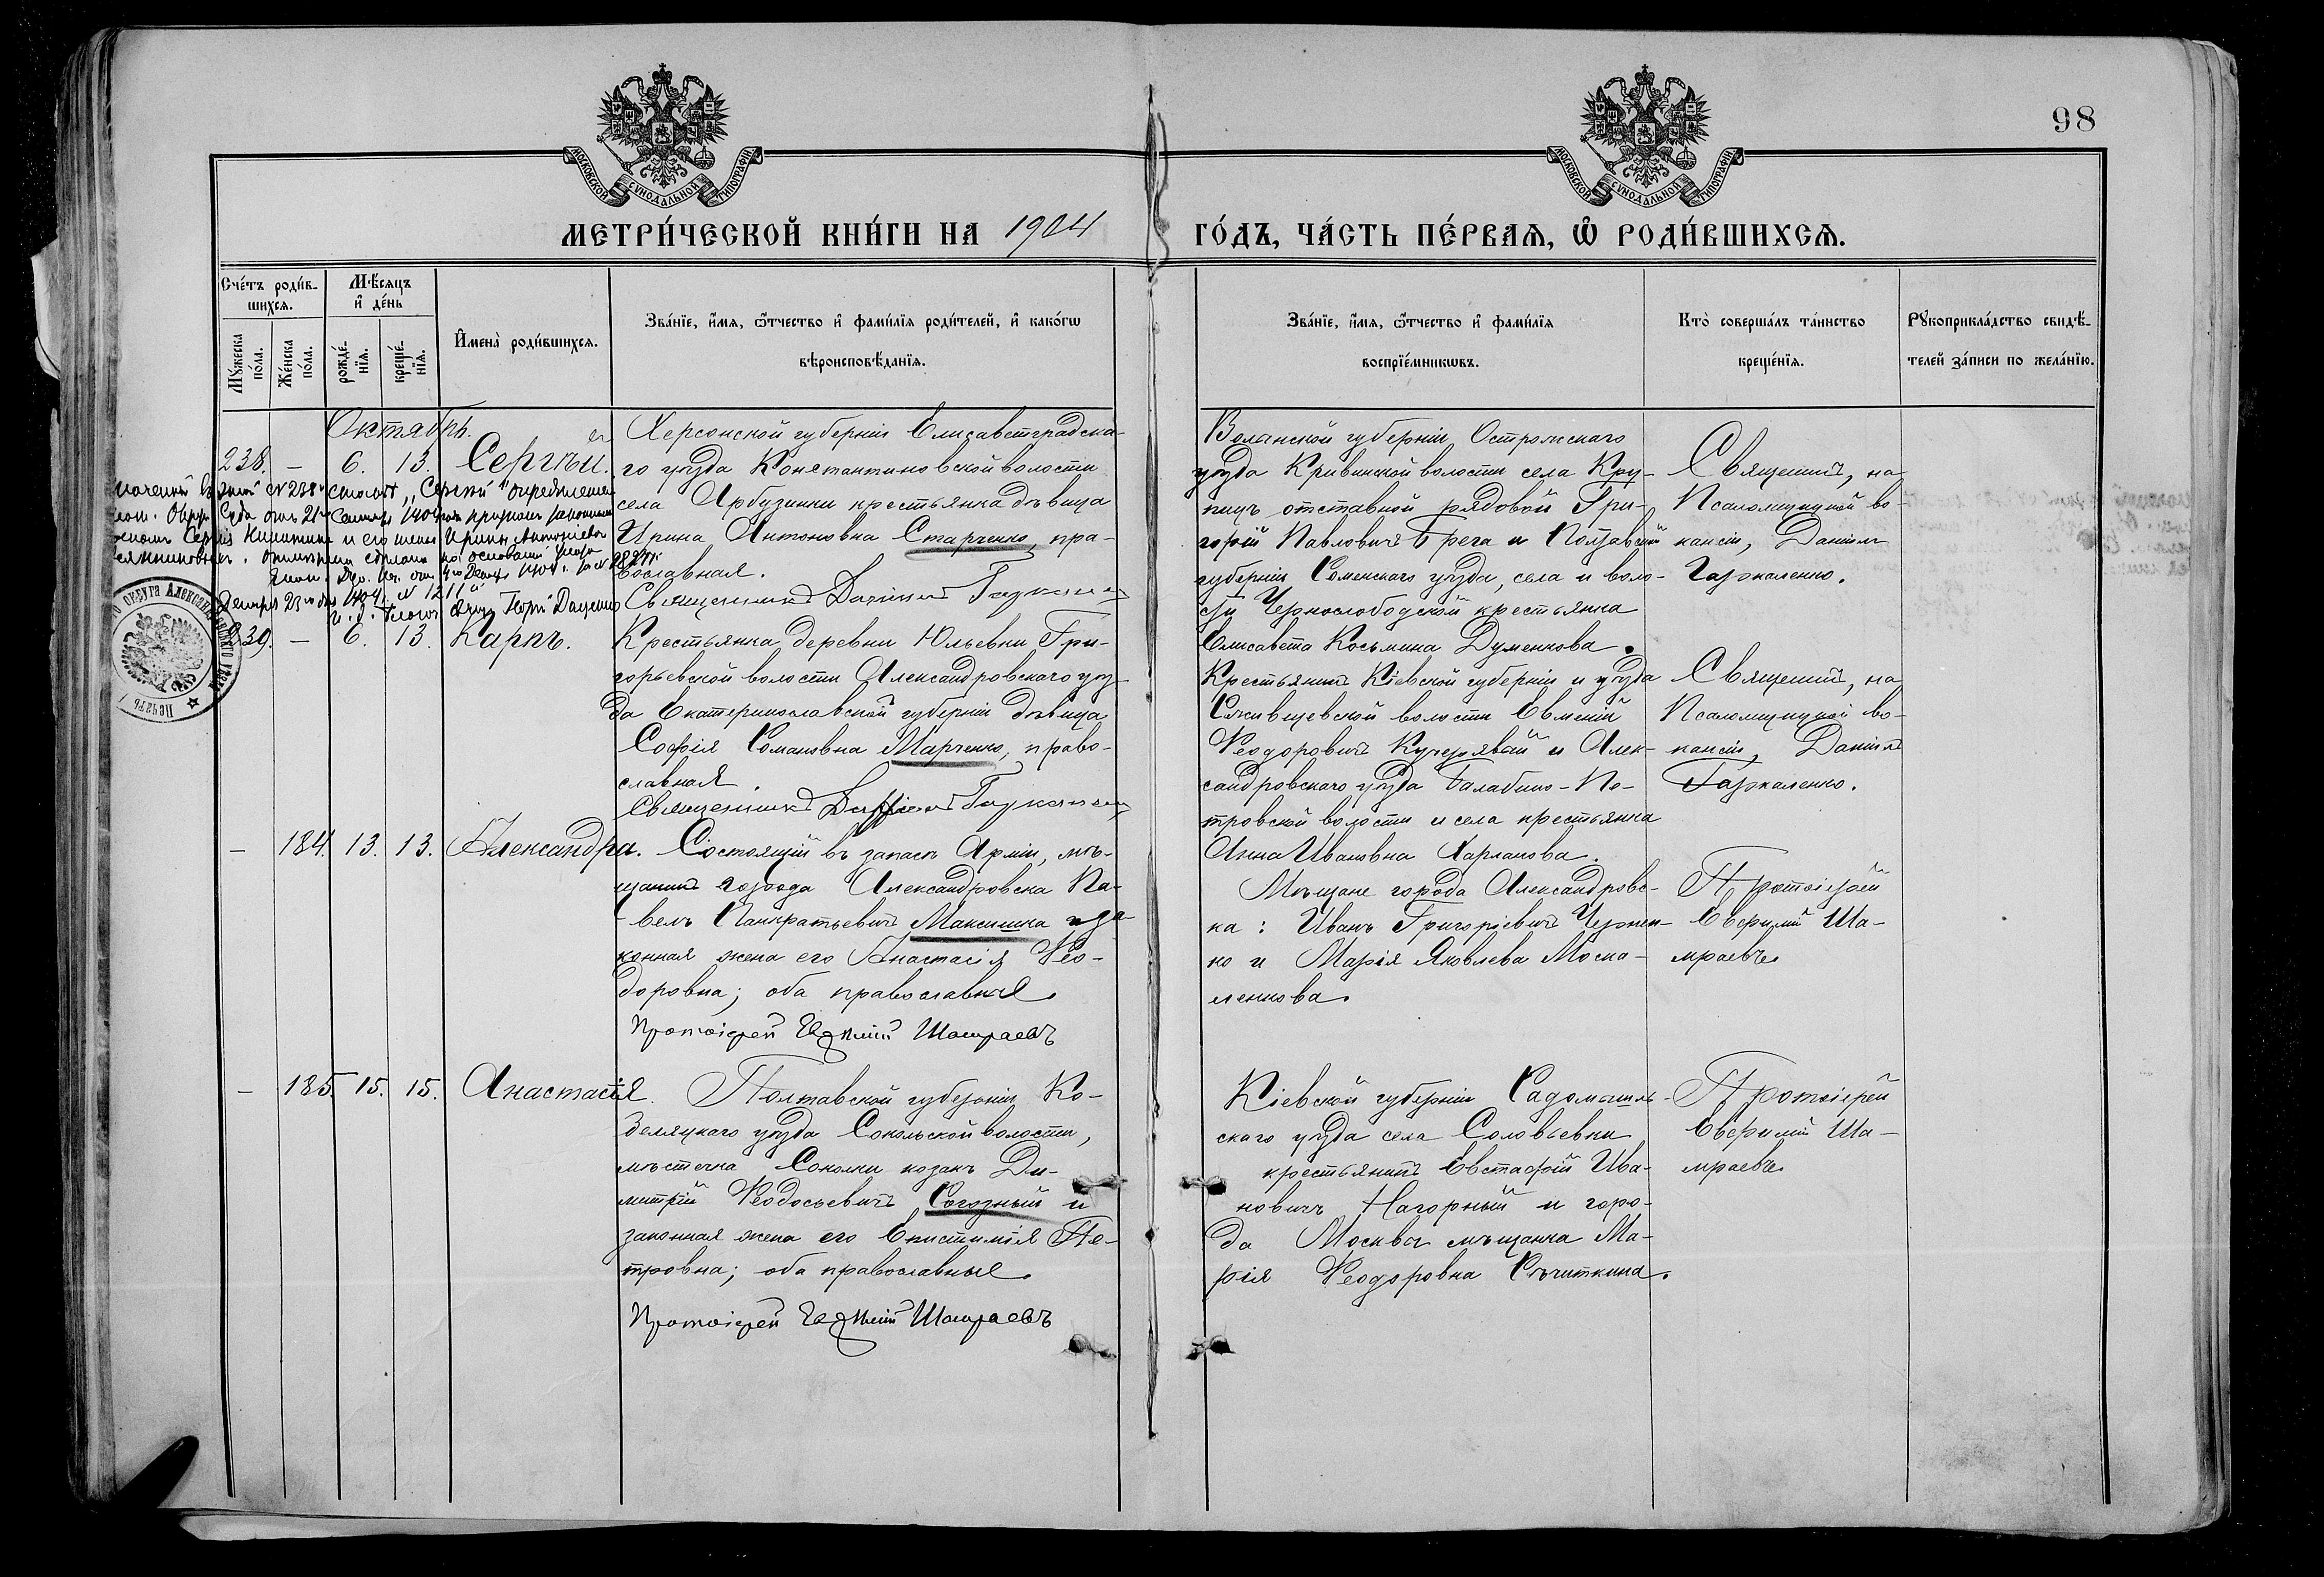 98
МОСКОВСКОЙ СѴНОДАЛЬНОЙ ТИПОГРАФІИ
МОСКОВСКОЙ СѴНОДАЛЬНОЙ ТИПОГРАФІИ
МЕТРИ́ЧЕСКОЙ КНИ́ГИ НА 1904 ГО́ДЪ, ЧА́СТЬ ПЕ́РВАѦ, Ѽ РОДИ́ВШИХСѦ.
Сче́тъ роди́вшихся.
Мѣ́сяцъ и҆ де́нь
Мꙋ́жеска по́ла.
Же́нска по́ла.
рожде́нїя.
креще́нїя.
И҆мена̀ роди́вшихся.
Зва́нїе, и҆́мя, ѻ҆́тчество и҆ фами́лїя роди́телей, и҆ како́гѡ
вѣроисповѣ́данїя.
Зва́нїе, и҆́мя, ѻ҆́тчество и҆ фами́лїя
воспрїе́мникѡвъ.
Кто̀ соверша́лъ та́инство
креще́нїя.
Рꙋкоприкла́дство свидѣ́телей за́писи по жела́нїю.
Октябрь.
238. — 6. 13. Сергѣй.
Херсонской губерніи Елисаветградска-
го уѣзда Константиновской волости
села Арбузинки крестьянка дѣвица
Ирина Антоновна Старченко, пра-
вославная.
Священникъ Даніилъ
Волынской губерніи Острожскаго
уѣзда Кривинской волости села Кру-
пицъ отставной рядовой Гри-
горій Павловичъ Грега и Полтавской
губерніи Роменскаго уѣзда, села и воло-
сти Чернослободской крестьянка
Елисавета Косьмина Думенкова.
Священникъ, на
Псаломщицкой ва-
кансіи, Даніилъ
Гаржаленко.
239. — 6. 13. Карпъ.
Крестьянка деревни Юльевки Гри-
горьевской волости Александровскаго уѣз-
да Екатеринославской губерніи дѣвица
Софія Романовна Марченко, право-
славная.
Священникъ Даніилъ
Крестьянинъ Кіевской губерніи и уѣзда
волости Евмений
Ѳеодоровичъ Кучерявый и Алек-
сандровскаго уѣзда Балабино-Пе-
тровской волости и села крестьянка
Анна Ивановна Харланова.
Священникъ, на
Псаломщицкой ва-
кансіи, Даніилъ
Гаржаленко.
— 184. 13. 13. Александра.
Состоящій въ запасѣ Арміи, мѣ-
щанинъ города Александровска Па-
велъ Панкратьевичъ Максишка и за-
конная жена его Анастасія Ѳео-
доровна; оба православные.
Протоіерей Евѳимій Шамраевъ
Мѣщане города Александровс-
ка: Иванъ Григоріевичъ Чернен-
ко и Марія Яковлева Моска-
ленкова.
Протоіерей
Евѳимій Ша-
мраевъ
— 185. 15. 15. Анастасія.
Полтавской губерніи Ко-
беляцкаго уѣзда Сокольской волости,
мѣстечка Соколки козакъ Ди-
митрій Ѳеодосьевичъ Согозный и
законная жена его Епистимія Пе-
тровна; оба православные.
Протоіерей Евѳимій Шамраевъ
Кіевской губерніи Радомысль-
скаго уѣзда села Соловьевки
крестьянинъ Евстафій Ива-
новичъ Нагорный и горо-
да Москвы мѣщанка Ма-
рія Ѳеодоровна Сѣчиткина.
Протоіерей
Евѳимій Ша-
мраевъ